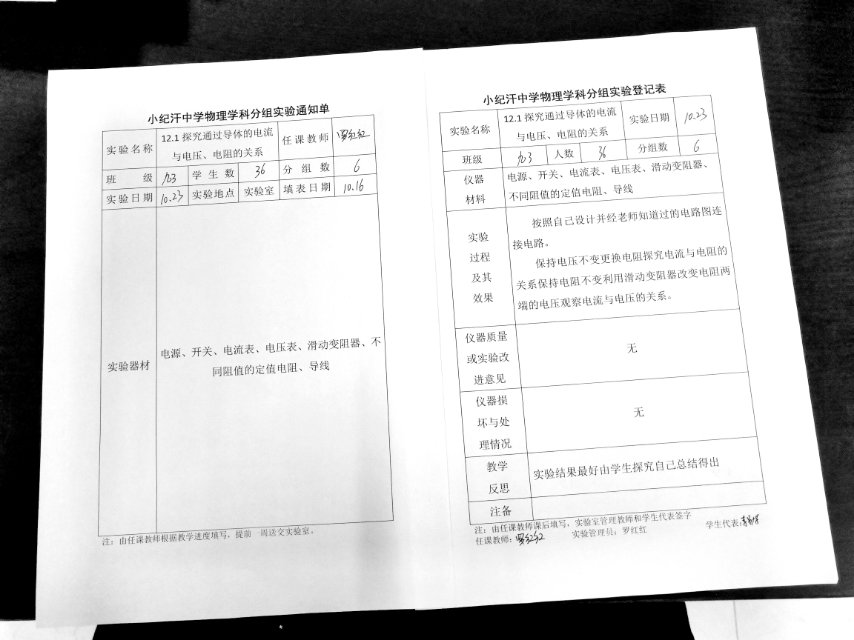 小纪汗中学物理学科分组实验通知单
实验名称
12.1 探究通过导体的电流
与电压、电阻的关系
任课教师
罗红红
班 级
学 生 数
36
分 组 数
6
实验日期
10.23
实验地点
实验室
填表日期
10.16
实验器材
电源、开关、电流表、电压表、滑动变阻器、不
同阻值的定值电阻、导线
注：由任课教师根据教学进度填写，提前 周送交实验室。
小纪汗中学物理学科分组实验登记表
实验名称
12.1 探究通过导体的电流
与电压、电阻的关系
实验日期
10.23
班级
人数
36
分组数
6
仪器
材料
电源、开关、电流表、电压表、滑动变阻器、
不同阻值的定值电阻、导线
实验
过程
及其
效果
按照自己设计并经老师知道过的电路图连
接电路。
保持电压不变更换电阻探究电流与电阻的
关系保持电阻不变利用滑动变阻器改变电阻两
端的电压观察电流与电压的关系。
仪器质量
或实验改
进意见
无
仪器损
坏与处
理情况
无
教学
反思
实验结果最好由学生探究自己总结得出
注备
注：由任课教师课后填写，实验室管理教师和学生代表签字
任课教师：罗红红 实验管理员：罗红红 学生代表：